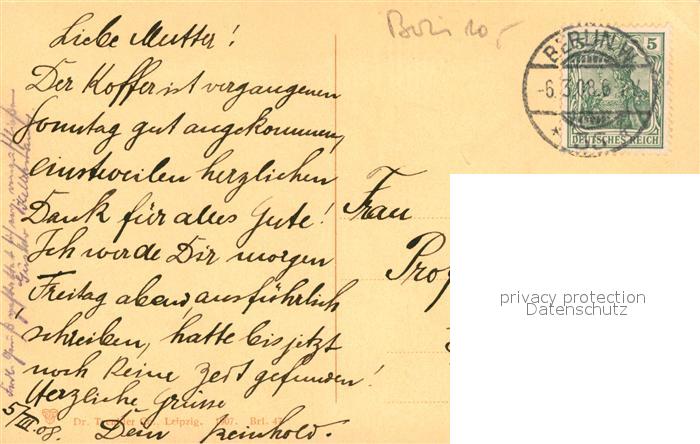 Liebe Mutter!
Der Koffer ist vergangenen
Sonntag gut angekommen,
einstweilen herzlichen
Dank für alles Gute!
Ich werde Dir morgen
Freitag abend, ausführlich
schreiben, hatte bis jetzt
noch keine Zeit gefunden!
Herzliche Grüsse
Dein Reinhold.
5/III 08.
Dr. Co., Leipzig. 1907. Brl. 
10,-
BERLIN W.
-6.3.08.6
5
DEUTSCHES REICH
Frau
privacy protection
Datenschutz